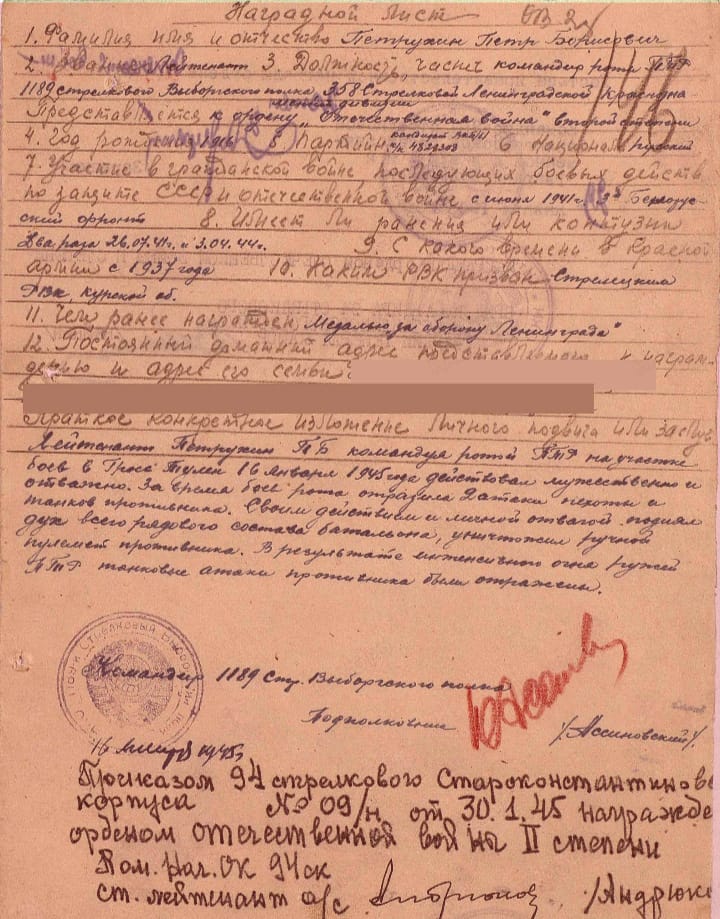 Наградной лист ОВ 2
1. Фамилия имя и отчество Петрухин Петр Борисович
2. Звание Лейтенант 3. Должность, часть командир роты ПТР
1189 стрелкового Выборгского полка 358 Стрелковой Ленинградской Краснозна-
менной дивизии
Представляется к ордену „Отечественная война" второй степени
4. Год рождения 5. Партийн кандидат ВКП/б/ 6 Национал русский
7. Участие в гражданской войне последующих боевых действ
по защите СССР и отечественной войне с июня 1941 г. 3й Белорус-
ский фронт 8. Имеет ли ранения или контузии
Два раза 26.07.41г. и 3.04.44г. 9. С какого времени в Красной
армии с 1937 года 10. Каким РВК призван Стрелецким
РВК, Курской об.
11. Чем ранее награжден „Медалью за оборону Ленинграда"
12. Постоянный домашний адрес представляемого к награж-
дению и адрес его семьи
Краткое конкретное изложение личного подвига или заслуг
Лейтенант Петрухин П Б командуя ротой ПТР на участке
боев в Гросс Тулен 16 января 1945 года действовал мужественно и
отважно. За время боев рота отразила 2 атаки пехоты и
танков противника. Своим действием и личной отвагой поднял
дух всего рядового состава батальона, уничтожил ручной
пулемет противника. В результате интенсивного огня ружей
ПТР танковые атаки противника были отражены.
Командир 1189 Стр. Выборгского полка
Подполковник /Ассиновский/
16 января 1945г
Приказом 94 стрелкового Староконстантинов
корпуса № 09/н от 30.1.45 награжде
орденом отечественной войны II степени
Пом. Нач. ОК 94 ск
ст. лейтенант а/с /Андрюк